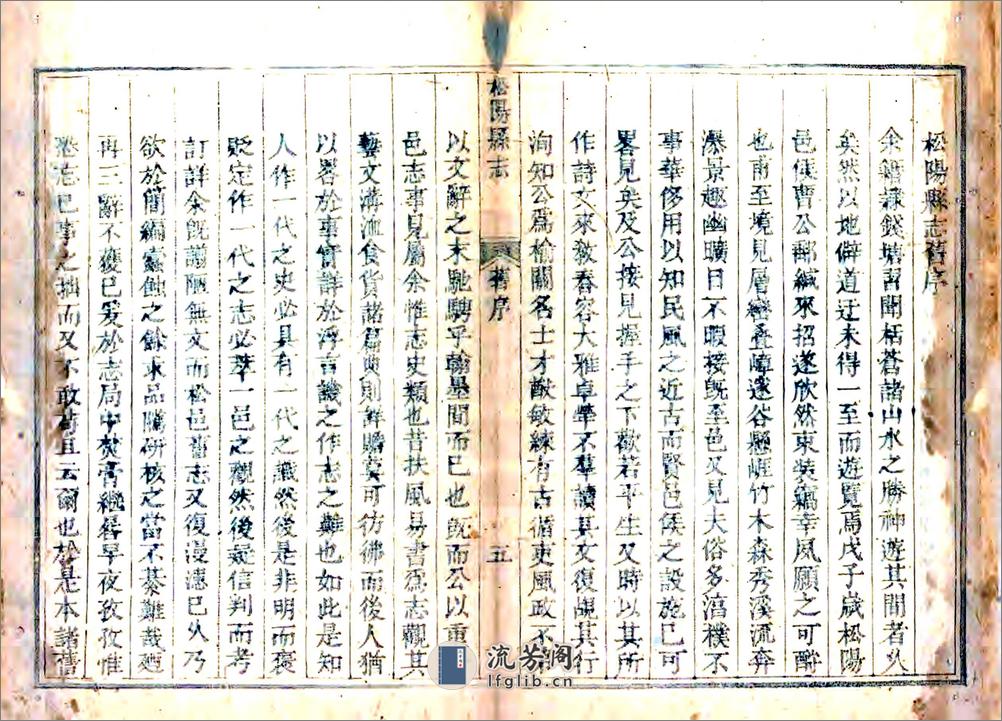 松陽縣志舊序
余籍隸錢塘習聞栝蒼諸山水之勝神遊其間者久
矣然以地僻道迂未得一至而遊覽焉戊子歲松陽
邑侯曹公郵緘來招遂欣然束裝竊幸夙願之可酧
也甫至境見層巒疊嶂邃谷懸崖竹木森秀溪流奔
瀑景趣幽曠日不暇接旣至邑又見夫俗多湻樸不
事華侈用以知民風之近古而賢邑侯之設施已可
畧見矣及公接見握手之下歡若平生又時以其所
作詩文來敎舂容大雅卓犖不羣讀其文復覩其行
洵知公爲榆關名士才猷敏練有古循吏風政不
以文辭之末馳騁乎翰墨間而已也旣而公以重
邑志事見屬余惟志史類也昔扶風易書爲志觀其
藝文溝洫食貨諸篇典則詳贍莫可彷彿而後人猶
以畧於事實詳於浮言譏之作志之難也如此是知
人作一代之史必具有一代之識然後是非明而褒
貶定作一代之志必萃一邑之觀然後疑信判而考
訂詳余旣謭陋無文而松邑舊志又復漫漶已久乃
欲於簡編蠹蝕之餘求品騭研核之當不綦難哉廼
再三辭不獲已爰於志局中焚膏繼晷早夜孜孜惟
忘己事之拙而又不敢苟且云爾也於是本諸舊
松陽縣志
舊序
五
流芳阁
lfglib.cn